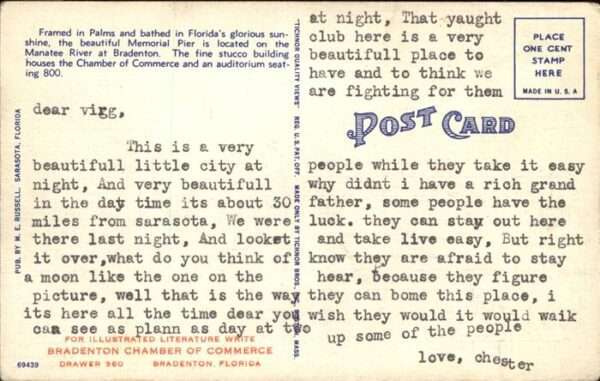 Framed in Palms and bathed in Florida's glorious sun-
shine, the beautiful Memorial Pier is located on the
Manatee River at Bradenton. The fine stucco building
houses the Chamber of Commerce and an auditorium seat-
ing 800.
dear virg,
This is a very
beautifull little city at
night, And very beautifull
in the day time its about 30
miles from sarasota, We were
there last night, And looket
it over,what do you think of
a moon like the one on the
picture, well that is the way
its here all the time dear you
can see as plann as day at two
FOR ILLUSTRATED LITERATURE WRITE
BRADENTON CHAMBER OF COMMERCE
DRAWER 360 BRADENTON, FLORIDA
69439
PUB. BY M. E. RUSSELL, SARASOTA, FLORIDA
"TICHNOR QUALITY VIEWS" REG. U.S. PAT. OFF. MADE ONLY BY TICHNOR BROS. MASS.
at night, That yaught
club here is a very
beautifull place to
have and to think we
are fighting for them
PLACE
ONE CENT
STAMP
HERE
MADE IN U.S.A
POST CARD
people while they take it easy
why didnt i have a rich grand
father, some people have the
luck. they can stay out here
and take live easy, But right
know they are afraid to stay
hear, because they figure
they can bome this place, i
wish they would it would waik
up some of the people
love, chester